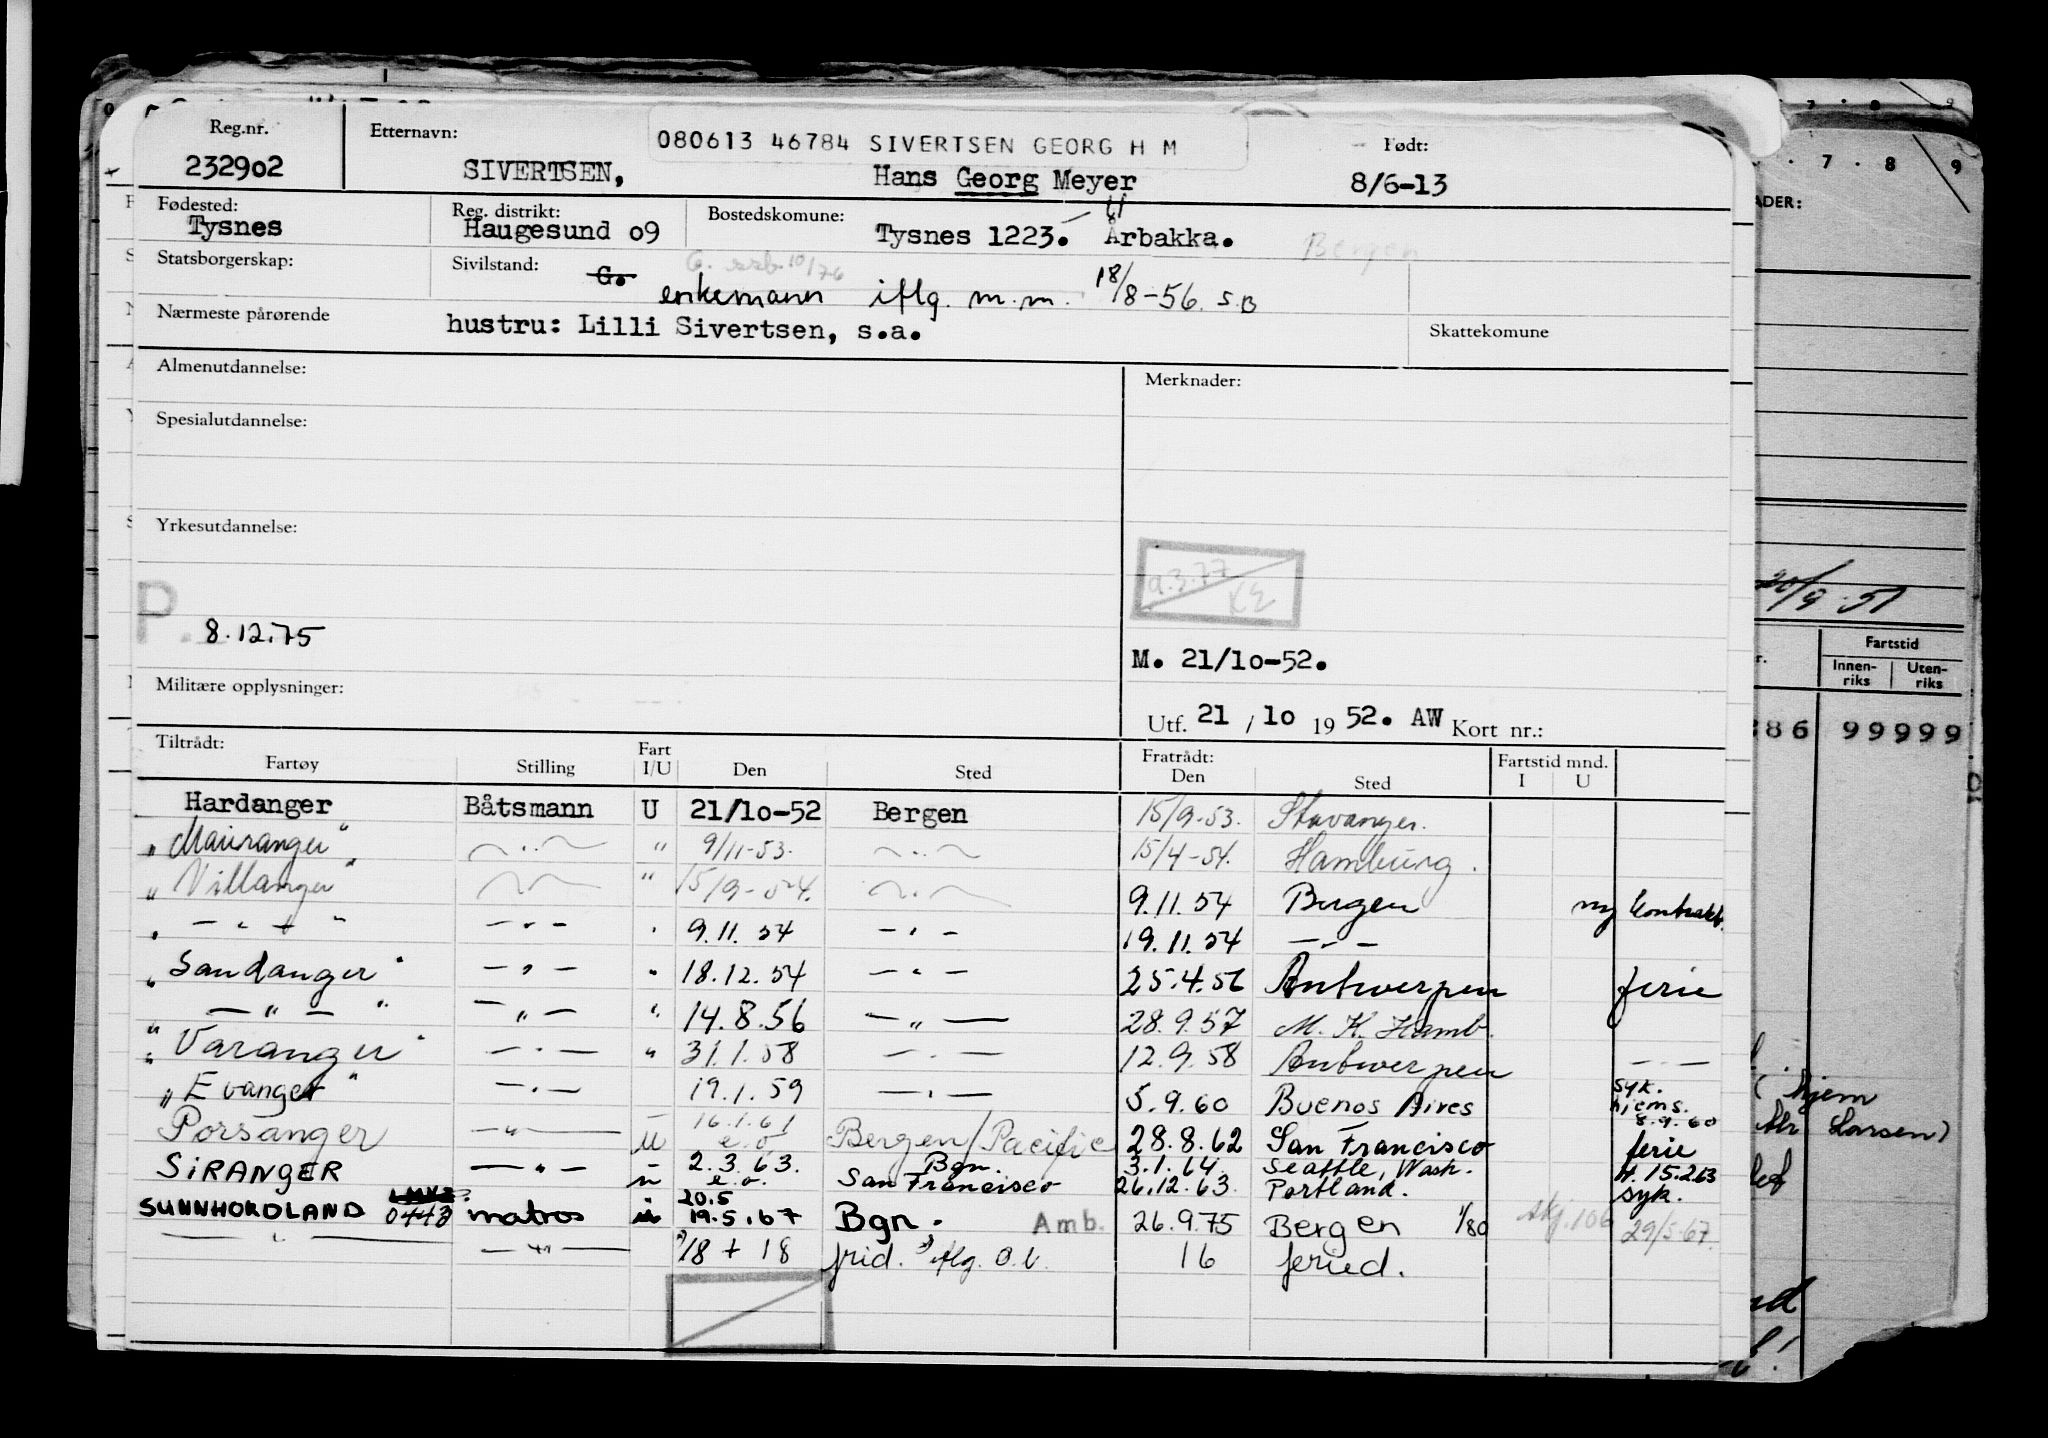 Reg.nr. Etternavn: 080613 46784 SIVERTSEN GEORG H M Født:
232902 SIVERTSEN, Hans Georg Meyer 8/6-13
Fødested: Reg. distrikt: Bostedskomune:
Tysnes Haugesund 09 Tysnes 1223. Årbakka. Bergen
Statsborgerskap: Sivilstand: G. G. 10/76
enkemann iflg. m.m. 18/8-56. S.B
Nærmeste pårørende hustru: Lilli Sivertsen, s.a. Skattekomune
Almenutdannelse: Merknader:
Spesialutdannelse:
Yrkesutdannelse:
9.3.77
P. 8.12.75
M. 21/10-52.
Militære opplysninger:
Utf. 21 / 10 19 52. AW Kort nr.:
Tiltrådt: Fart Fratrådt: Fartstid mnd.
Fartøy Stilling I/U Den Sted Den Sted I U
Hardanger Båtsmann U 21/10-52 Bergen 15/9-53. Stavanger.
" Mauranger " — " — " 9/11-53. — " — 15/4-54. Hamburg.
" Villanger " — " — " 15/9-54. — " — 9.11.54 Bergen ny kontrakt.
" — " — " — " — " 9.11.54 — " — 19.11.54 — " —
" Sandanger " — " — " 18.12.54 — " — 25.4.56 Antwerpen ferie
" — " — " — " — " 14.8.56 — " — 28.9.57 M. K. Hamb.
" Varanger " — " — " 31.1.58 — " — 12.9.58 Antwerpen — " —
" Evanger " — " — 19.1.59 — " — 5.9.60 Buenos Aires syk. hjems. 8.9.60
Porsanger — " — U 16.1.61 e.o. Bergen/Pacific 28.8.62 San Francisco ferie
SIRANGER — " — " 2.3.63. e.o. Bgn. San Francisco 3.1.64. 26.12.63. Seattle, Wash. Portland. 15.2.63 syk.
SUNNHORDLAND 0443 matros 20.5 19.5.67 Bgn. Amb. 26.9.75 Bergen 1/80 106 29/5-67.
— " — — " — 18 + 18 frid. iflg. O.l. 16 feried.
7 8 9
7 . 8 9
ADER:
20/9-51
Fartstid
Innen-riks Uten-riks
86 99999
hjem
Larsen)